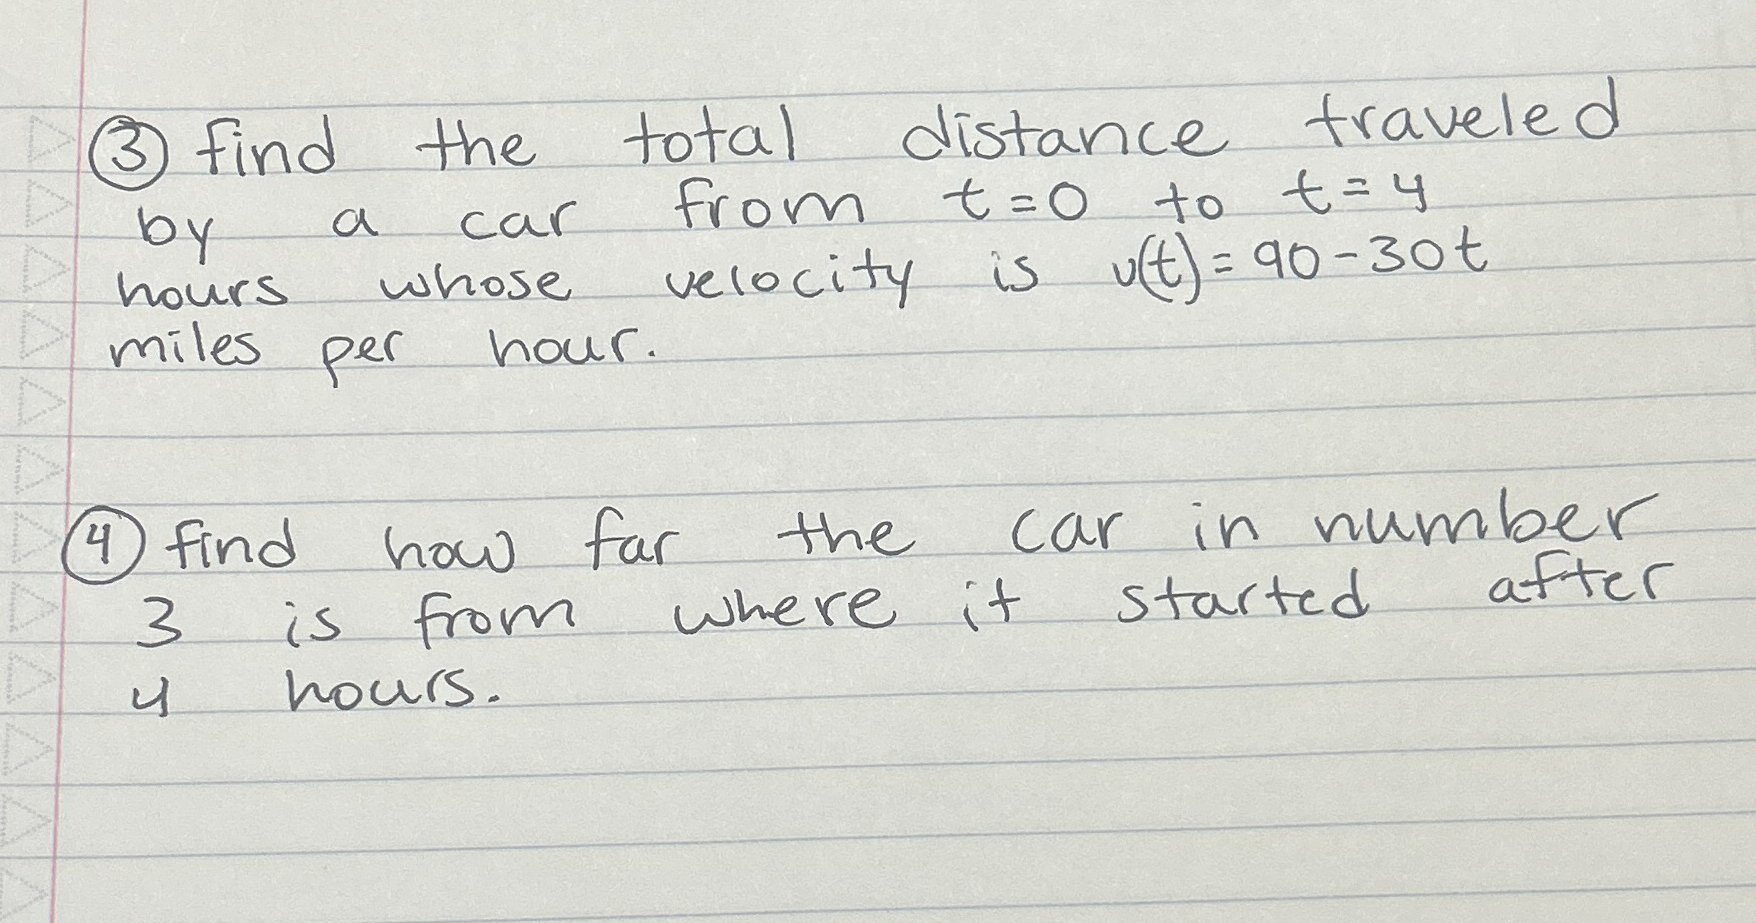 ③ find the total distance traveled
by a car from t=0 to t=4
hours whose velocity is v(t)=90-30t
miles per hour.
④ find how far the car in number
3 is from where it started after
4 hours.